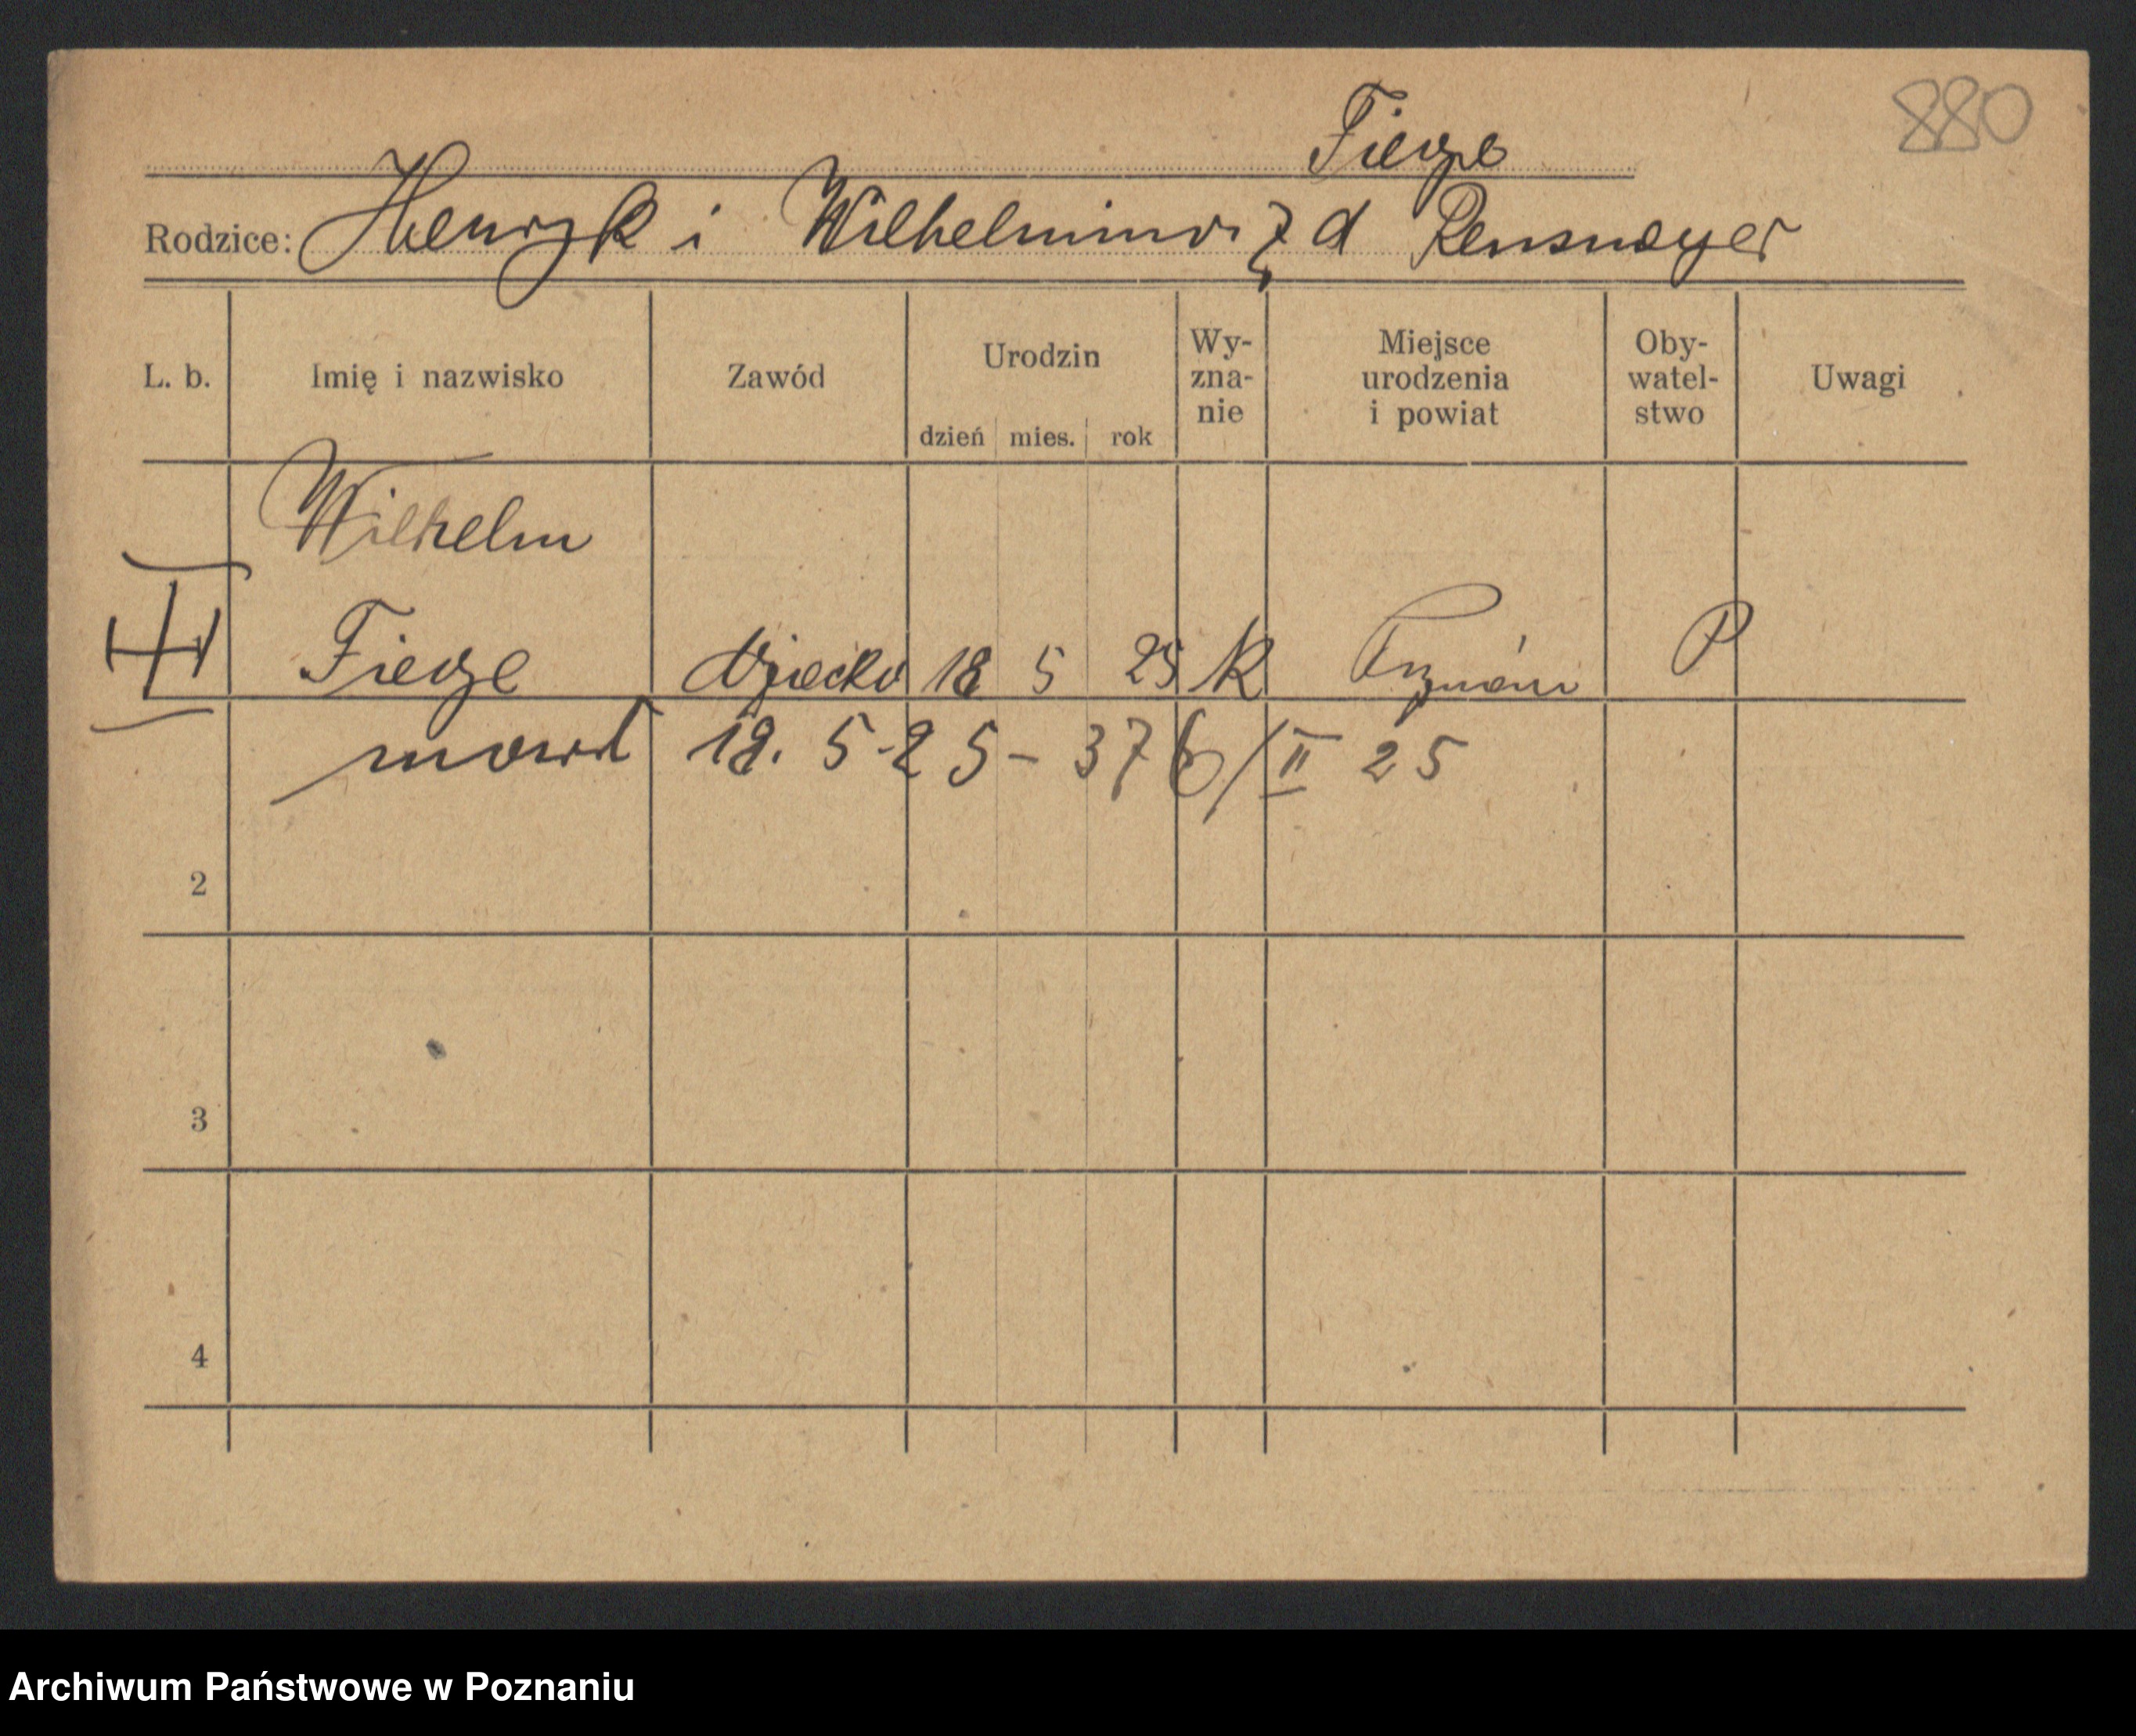 880
Fiege
Rodzice: Henryk i Wilhelmina z d Rensmeyer
L. b. Imię i nazwisko Zawód Urodzin dzień mies. rok Wy-zna-nie Miejsce urodzenia i powiat Oby-watel-stwo Uwagi
Wilhelm
Fiege dziecko 18 5 25 K Poznań P
18. 5-25- 376/II 25
2
3
4
Archiwum Państwowe w Poznaniu